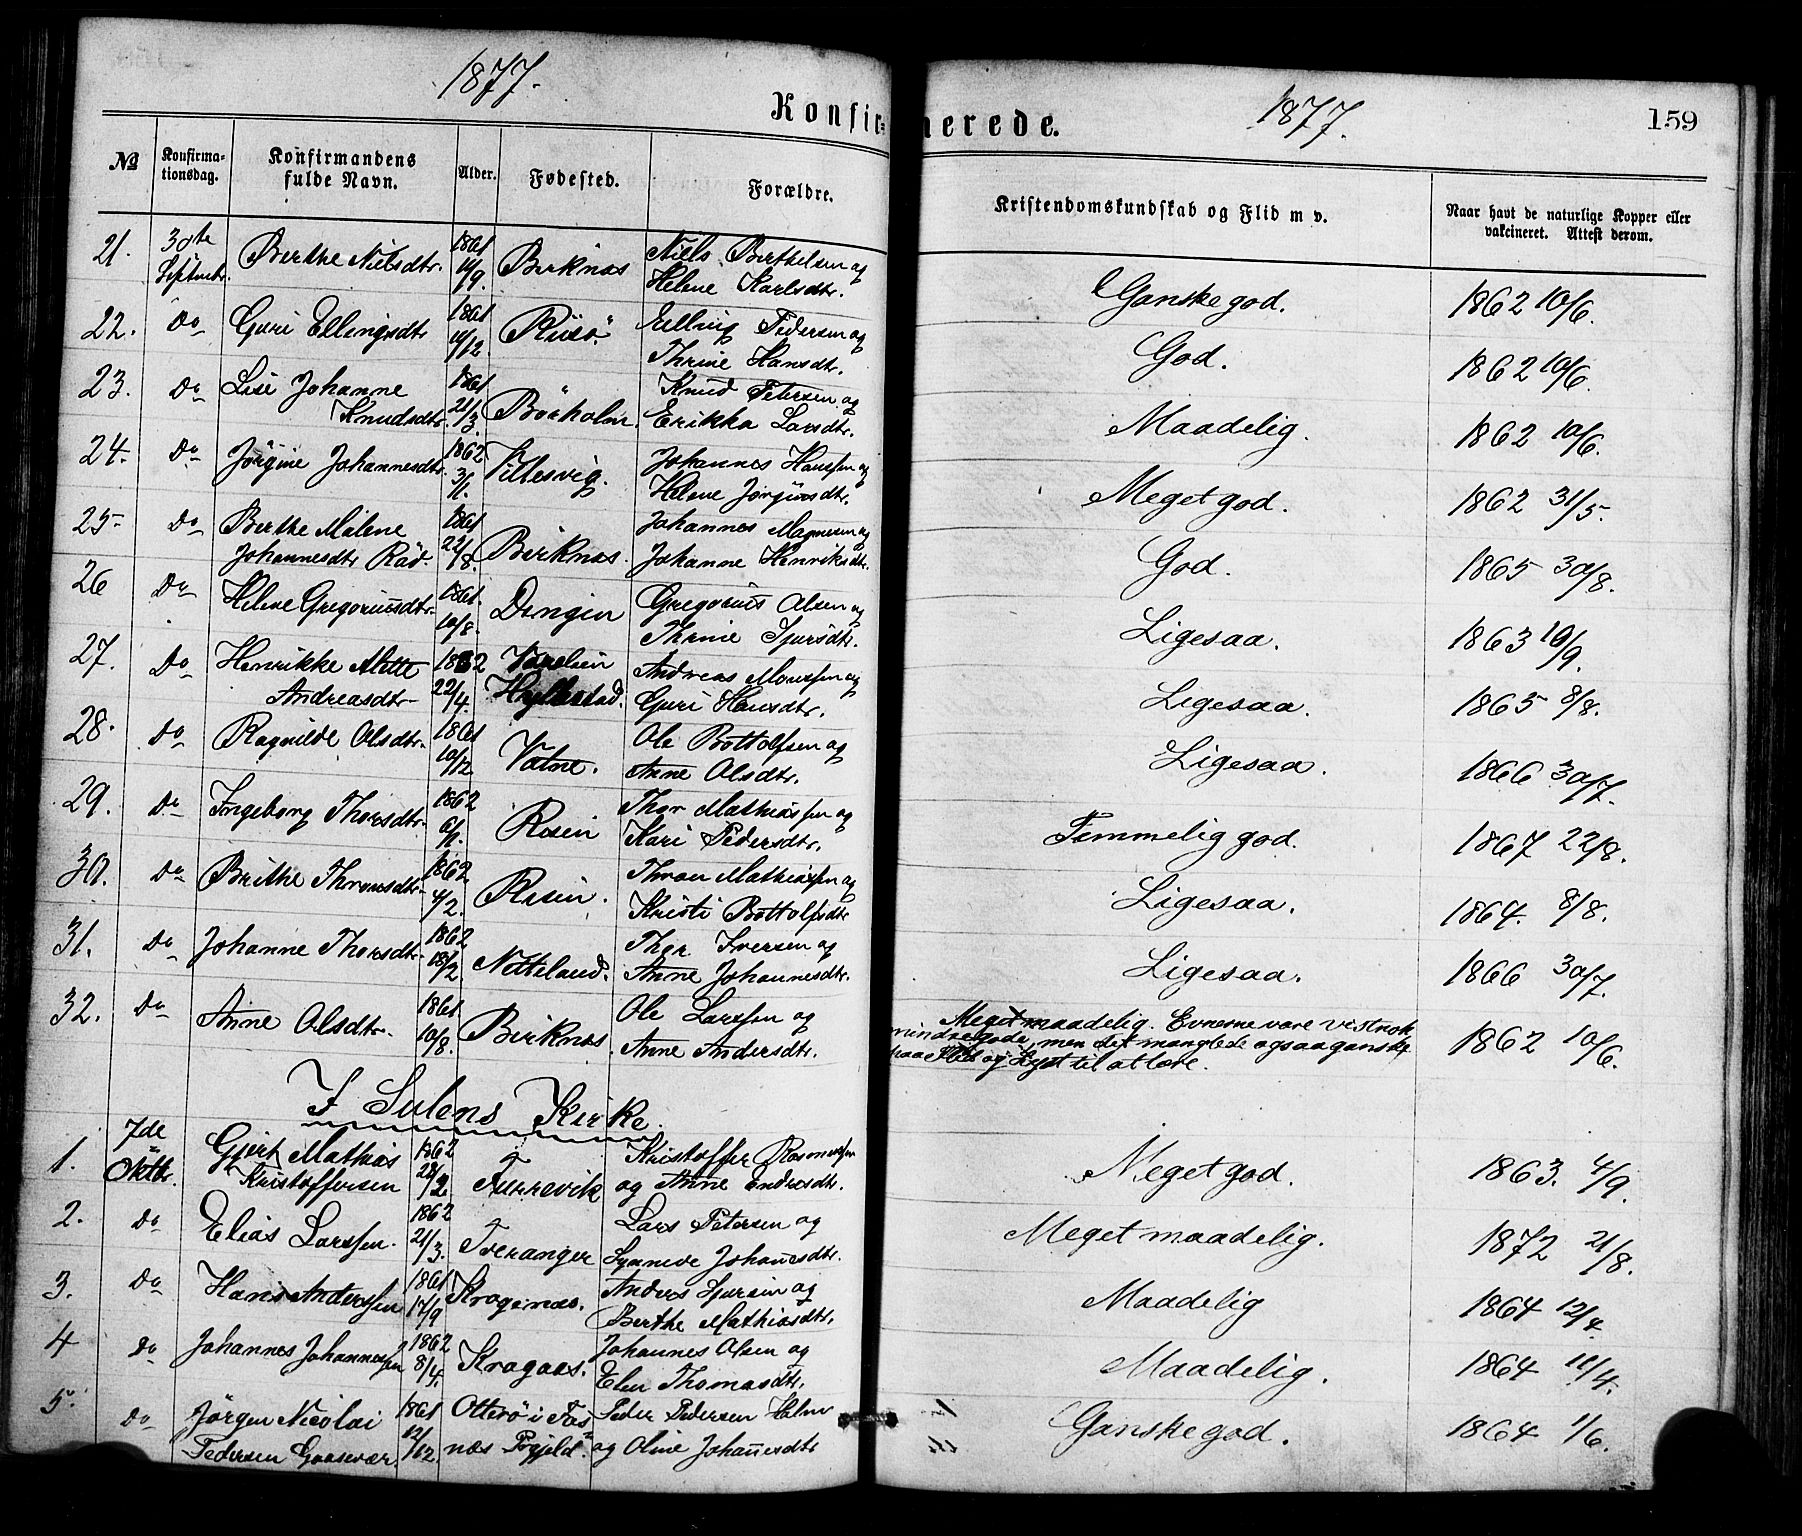 1877.
Konfir=
№
Konfirma-
tionsdag.
Konfirmandens
fulde Navn.
Alder.
Fødested.
Forældre.
21. 30te Septbr. Berthe Nilsdtr. 1861 19/9. Birknæs Niels Berthelsen og
Helene Karlsdtr.
22. Do Guri Ellingsdtr 1861 19/12 Risø Elling Pedersen og
Thrine Hansdtr.
23. Do Lise Johanne 1861 Knud Petersen og
Knudsdtr. 21/3. Börholm. Erikka Larsdtr.
24. Do Jørgine Johannesdtr. 1862 3/1. Villesvig. Johannes Hansen og
Helene Jørginsdtr.
25. Do Berthe Malene 1861 Johannes Magnesen og
Johannesdtr Räd. 22/8. Birknæs. Johanne Henriksdtr.
26 Do Helene Gregoriusdtr. 1861. 10/8. Dingen Gregorius Olsen og
Thrine Sjursdtr.
27. Do Henrikke Alette 1862 Andreas Monssen og
Andreasdtr 22/4. Hyllestad. Guri Hansdtr.
28. Do Ragnilde Olsdtr. 1861 10/12 Vatne. Ole Bottolfsen og
Anne Olsdtr.
29. Do Ingeborg Thorsdtr. 1862 6/1. Risin Thor Mathiassen og
Kari Pedersdtr.
30. Do Brithe Thronsdtr. 1862 4/2. Risin. Thron Mathiassen og
Kristi Bottolfsdtr
31. Do Johanne Thorsdtr. 1862 18/2 Nitteland. Thor Iversen og
Anne Johannesdtr.
32. Do Anne Olsdtr. 1861 10/8. Birknæs. Ole Larssen og
Anne Andersdtr.
I Sulens Kirke.
1. 7de Oktbr. Gjert Mathias 1862 Kristoffer Rasmussen
Kristoffersen 28/2. Furrevik og Anne Endresdtr.
2. Do Elias Larssen. 1862 21/3. Tveranger Lars Petersen og
Synneve Johanesdtr.
3. Do Hans Anderssen 1861 17/9 Kragenæs. Anders Sjursen og
Berthe Mathiasdtr.
4 Do Johannes Johannessen 1862 8/4. Kragaas. Johannes Olsen og
Elen Thomasdtr.
5. Do Jørgen Nicolai 1861 Otterø i Fos Peder Pedersen Holm
Pedersen Gaasevær. 12/12. næs Prgjeld. og Oline Johanesdtr
1877.
merede.
159
Kristendomskundskab og Flid m v.
Naar havt de naturlige Kopper eller
vakcineret. Attest derom.
Ganske god. 1862 10/6.
God. 1862 10/6.
Maadelig. 1862 10/6.
Meget god. 1862 31/5.
God. 1865 30/8.
Ligesaa. 1863 19/9.
Ligesaa. 1865 8/8.
Ligesaa. 1866 30/7.
Temmelig god. 1867 22/8.
Ligesaa. 1864. 8/8.
Ligesaa. 1866 30/7.
Meget maadelig. Evnerne vare vistnok
mindre gode, men det manglede ogsaa ganske
paa Flid og Lyst til at lære.
1862 10/6.
Meget god. 1863. 4/9.
Meget maadelig. 1872 21/8.
Maadelig 1864 12/4.
Maadelig. 1864 11/4.
Ganske god. 1864 1/6.